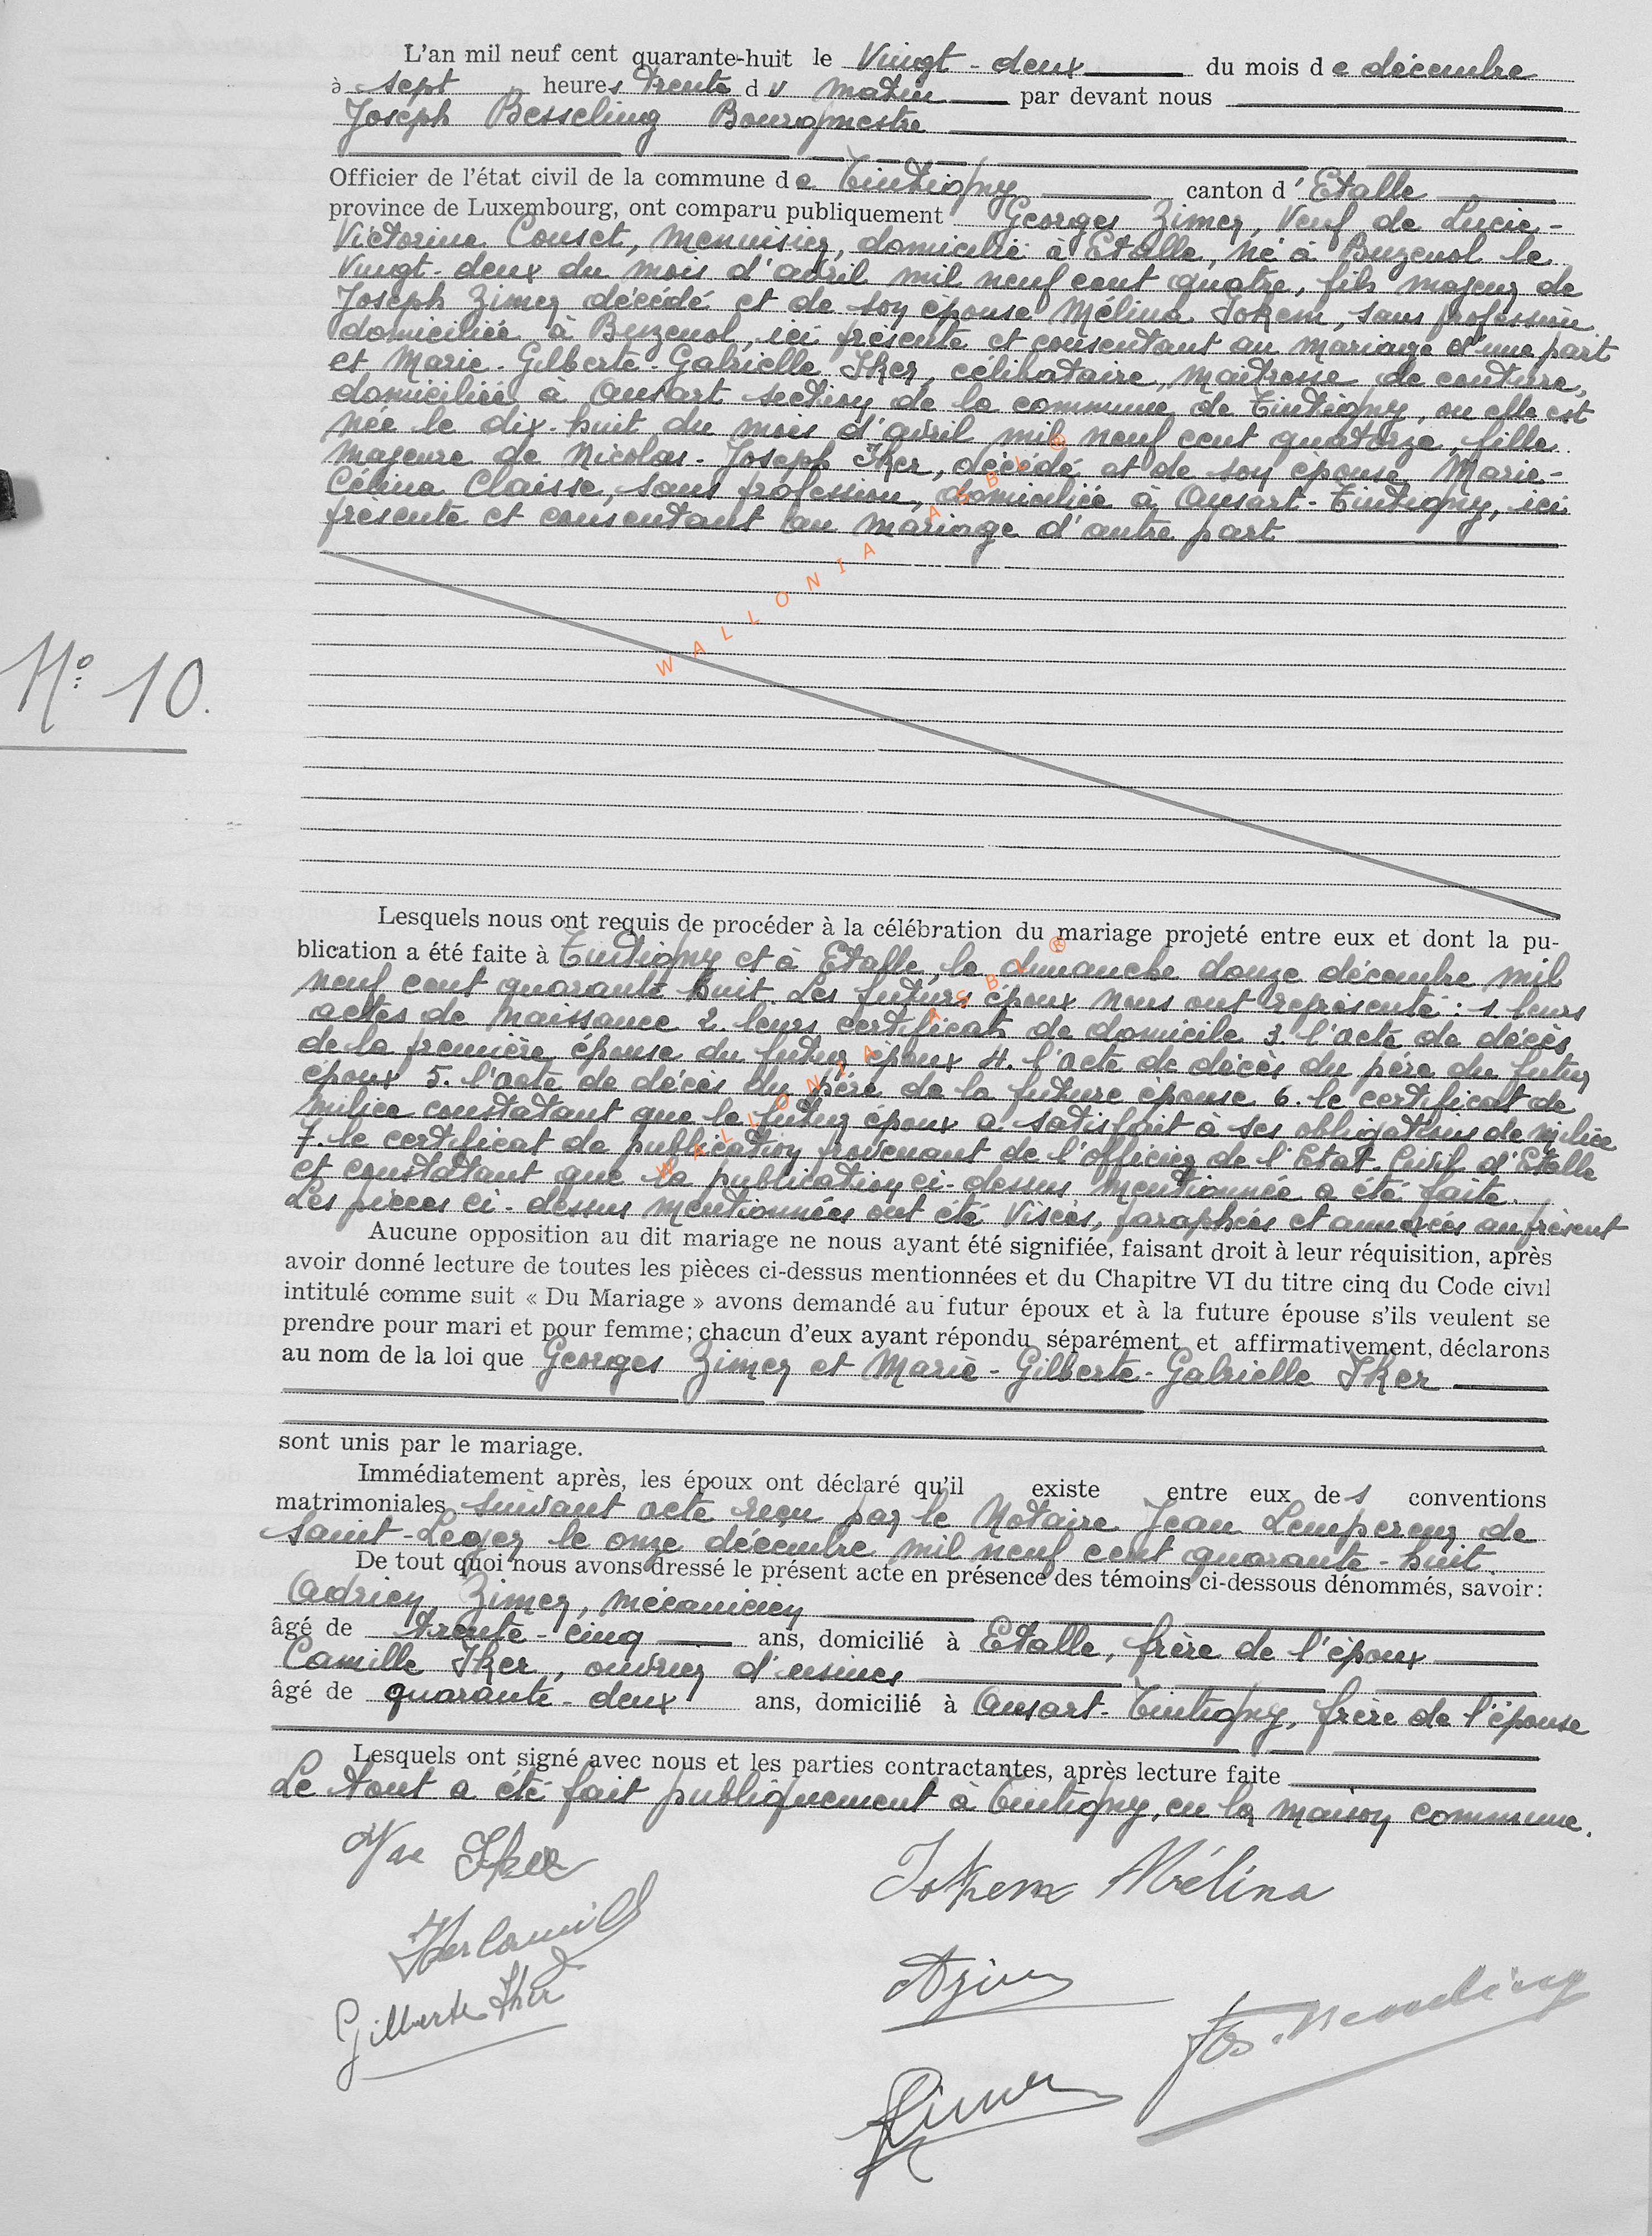 L'an mil neuf cent quarante-huit le Vingt-deux du mois de décembre
à sept heures trente du matin par devant nous
Joseph Besseling Bourgmestre
Officier de l'état civil de la commune de Tintigny canton d'Etalle
province de Luxembourg, ont comparu publiquement Georges Zimer, Veuf de Lucie-
Victorine Couset, menuisier, domicilié à Etalle, né à Buzenol le
Vingt-deux du mois d'avril mil neuf cent quatre, fils majeur de
Joseph Zimer décédé et de son épouse Mélina Jokem, sans profession
domiciliée à Buzenol, ici présente et consentant au mariage d'une part
et Marie-Gilberte-Gabrielle Iker, célibataire, maîtresse de couture,
domiciliée à Ansart section de la commune de Tintigny, où elle est
née le dix-huit du mois d'avril mil neuf cent quatorze, fille
majeure de Nicolas-Joseph Iker, décédé et de son épouse Marie-
Célina Claisse, sans profession, domiciliée à Ansart-Tintigny, ici
présente et consentant au mariage d'autre part
WALLONIA ASBL ®
N° 10.
Lesquels nous ont requis de procéder à la célébration du mariage projeté entre eux et dont la pu-
blication a été faite à Tintigny et à Etalle, le dimanche douze décembre mil
neuf cent quarante huit. Les futurs époux nous ont représenté : 1 leurs
actes de naissance 2. leurs certificats de domicile 3 l'acte de décès
de la première épouse du futur époux 4. l'acte de décès du père du futur
époux 5. l'acte de décès du père de la future épouse 6. le certificat de
milice constatant que le futur époux a satisfait à ses obligations de milice
7. le certificat de publication provenant de l'officier de l'Etat-Civil d'Etalle
et constatant que la publication ci-dessus mentionnée a été faite.
Les pièces ci-dessus mentionnées ont été visées, paraphées et annexées au présent
WALLONIA ASBL ®
Aucune opposition au dit mariage ne nous ayant été signifiée, faisant droit à leur réquisition, après
avoir donné lecture de toutes les pièces ci-dessus mentionnées et du Chapitre VI du titre cinq du Code civil
intitulé comme suit « Du Mariage » avons demandé au futur époux et à la future épouse s'ils veulent se
prendre pour mari et pour femme; chacun d'eux ayant répondu séparément et affirmativement, déclarons
au nom de la loi que Georges Zimer et Marie-Gilberte-Gabrielle Iker
sont unis par le mariage.
Immédiatement après, les époux ont déclaré qu'il existe entre eux des conventions
matrimoniales suivant acte reçu par le Notaire Jean Lempereur de
Saint-Leger le onze décembre mil neuf cent quarante-huit.
De tout quoi nous avons dressé le présent acte en présence des témoins ci-dessous dénommés, savoir:
Adrien Zimer, mécanicien
âgé de trente-cinq ans, domicilié à Etalle, frère de l'époux
Camille Iker, ouvrier d'usines
âgé de quarante-deux ans, domicilié à Ansart-Tintigny, frère de l'épouse
Lesquels ont signé avec nous et les parties contractantes, après lecture faite
Le tout a été fait publiquement à Tintigny, en la maison commune.
Vve Iker
Jokem Mélina
Iker Camille
Gilberte Iker
AZimer
Jos. Besseling
Zimer